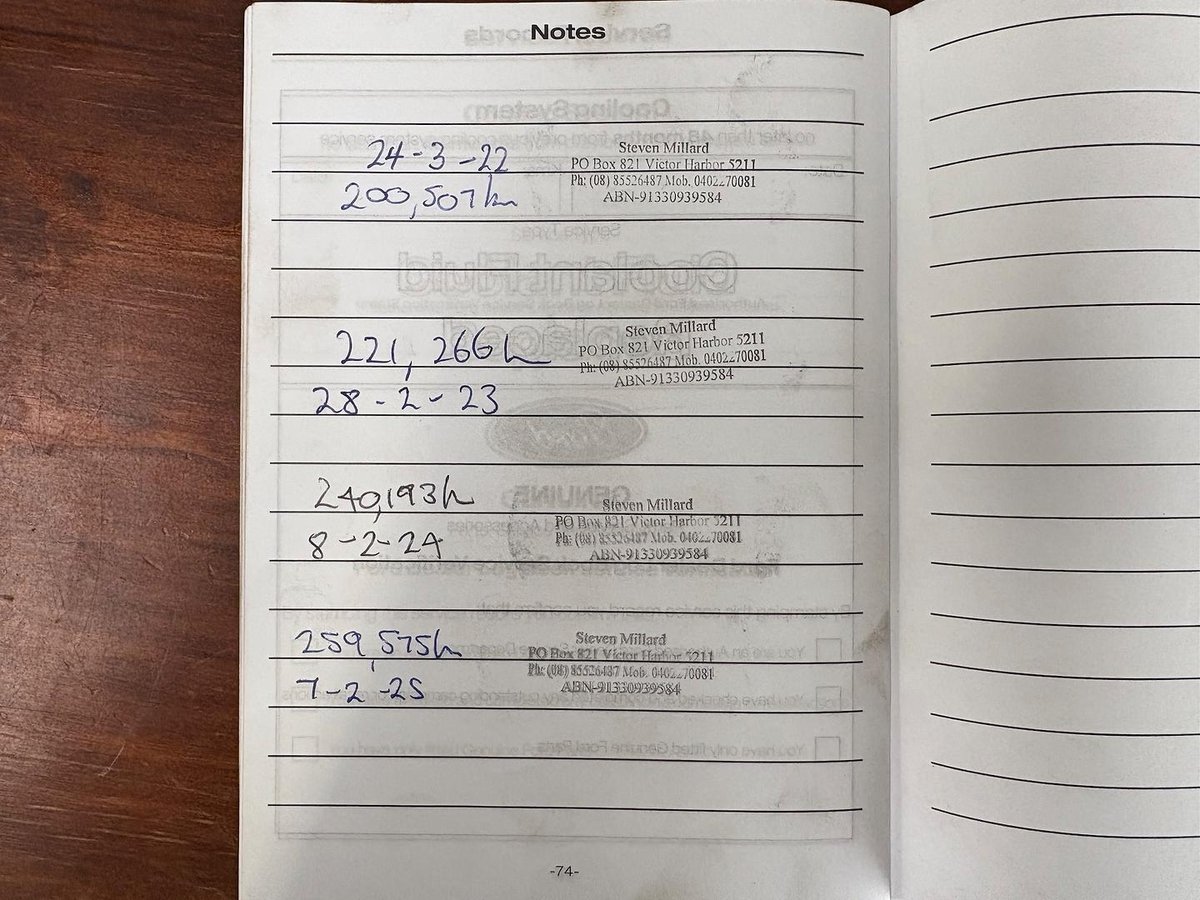 Notes
24-3-22
Steven Millard
PO Box 821 Victor Harbor 5211
200,507km
Ph: (08) 85526487 Mob. 0402270081
ABN-91330939584
221,266km
Steven Millard
PO Box 821 Victor Harbor 5211
Ph: (08) 85526487 Mob. 0402270081
28-2-23
ABN-91330939584
240,193km
Steven Millard
PO Box 821 Victor Harbor 5211
8-2-24
Ph: (08) 85526487 Mob. 0402270081
ABN-91330939584
259,575km
Steven Millard
PO Box 821 Victor Harbor 5211
7-2-25
Ph: (08) 85526487 Mob. 0402270081
ABN-91330939584
-74-